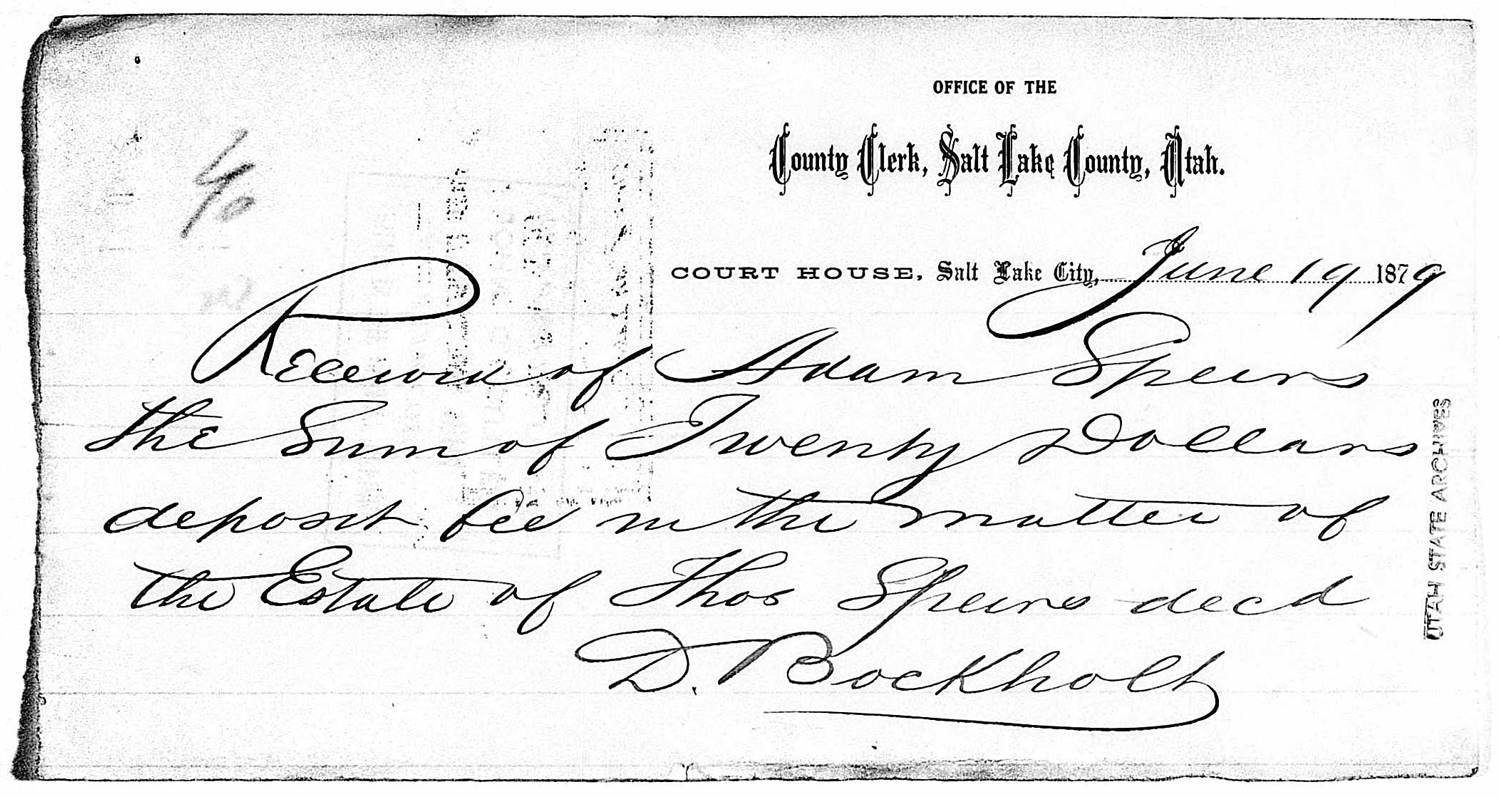 OFFICE OF THE
County Clerk, Salt Lake County, Utah.
COURT HOUSE, Salt Lake City, June 19 1879
Received of Adam Speirs
the Sum of Twenty Dollars
deposit fee in the matter of
the Estate of Thos Speirs decd
D. Bockholt
UTAH STATE ARCHIVES